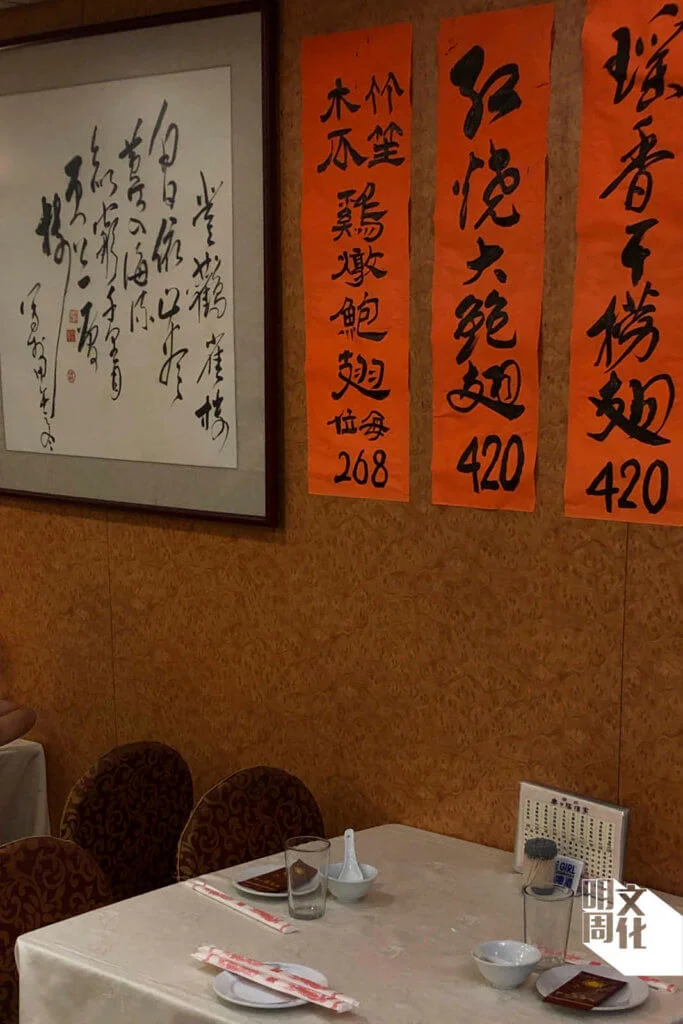 登鸛雀樓
白日依山盡
黃河入海流
欲窮千里目
更上一層
樓
瑶香干捞翅
420
红燒大鲍翅
420
竹笙
木瓜
鷄燉鮑翅
每位
268
GIRL
明周
文化